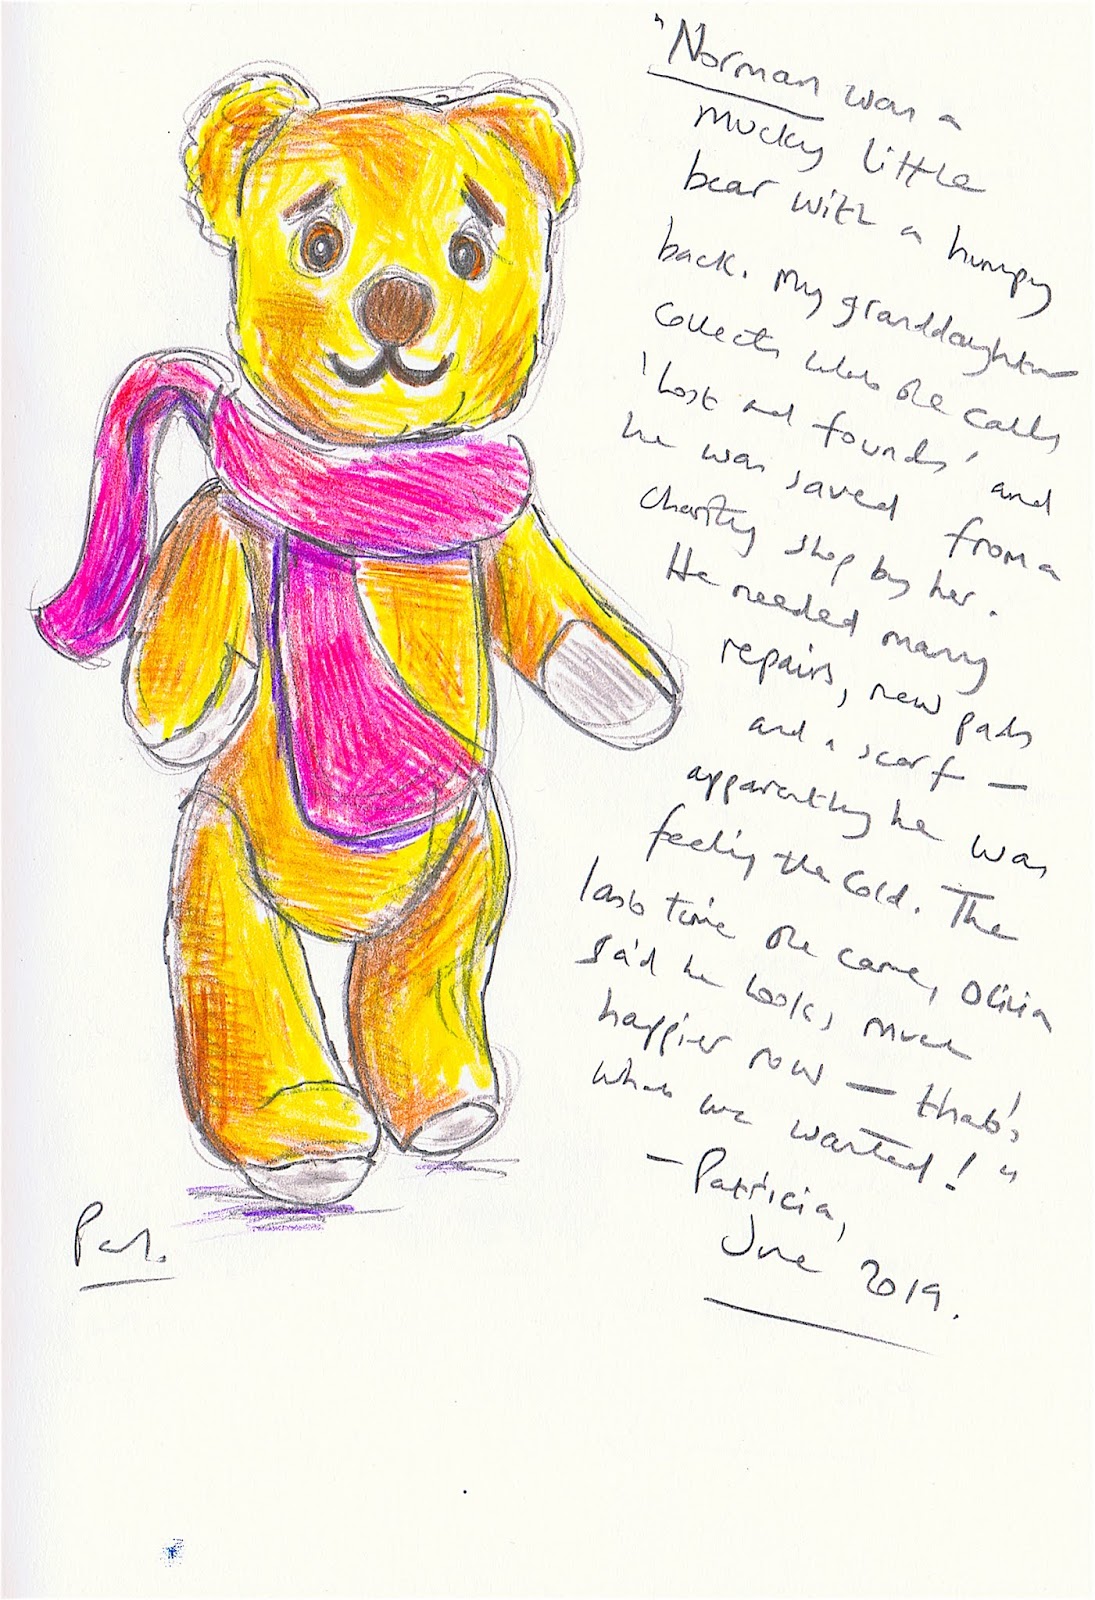 "Norman was a
mucky little
bear with a humpy
back. My granddaughter
collects what she calls
'lost and founds' and
he was saved from a
charity shop by her.
He needed many
repairs, new pads
and a scarf —
apparently he was
feeling the cold. The
last time she came, Olivia
said he looks much
happier now — that's
what we wanted!"
— Patricia,
June 2019.